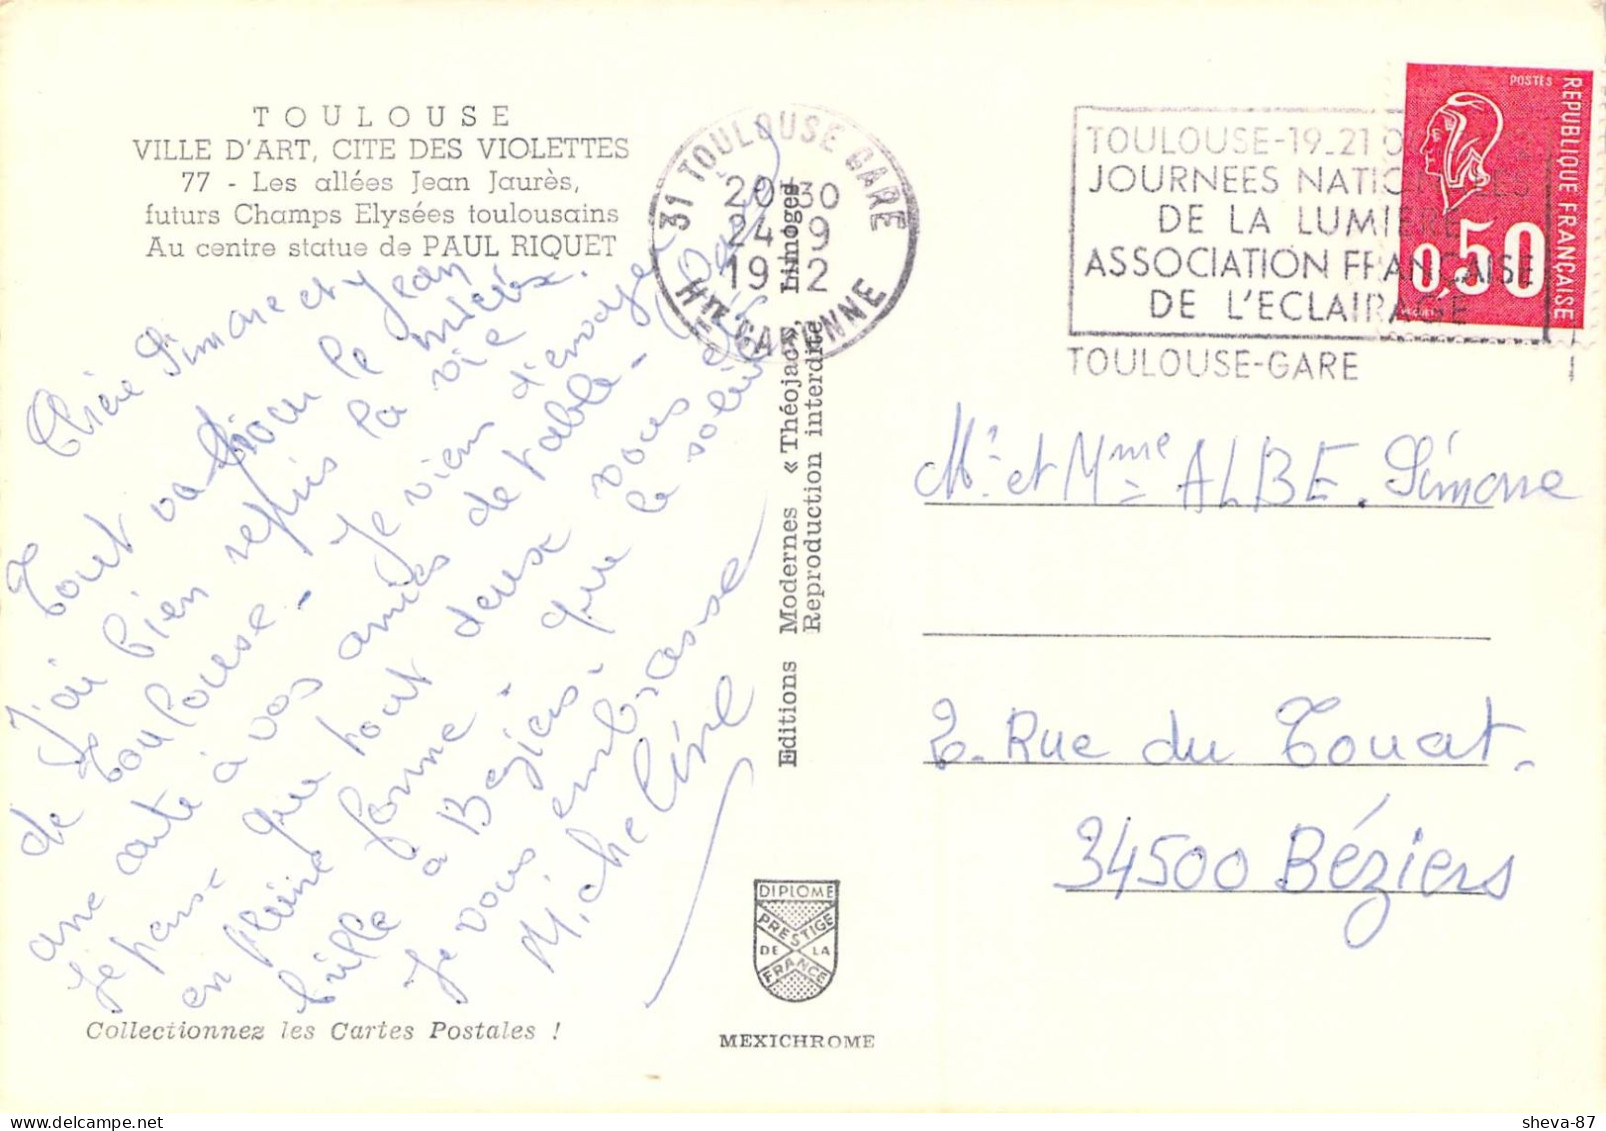 TOULOUSE
VILLE D'ART, CITE DES VIOLETTES
77 - Les allées Jean Jaurès,
futurs Champs Elysées toulousains
Au centre statue de PAUL RIQUET
Chère Simone et Jean
Tout va bien le mieux.
J'ai bien repris la vie
de Toulouse - Je viens d'envoyer
une carte à vos amies de table -
Je pense que tout deux vous
en pleine forme - que le soleil
brille à Beziers.
Je vous embrasse
Micheline
Collectionnez les Cartes Postales !
Editions Modernes « Théojac » Limoges
Reproduction interdite
DIPLOME
PRESTIGE
DE LA
FRANCE
MEXICHROME
31 TOULOUSE GARE
20H30
24-9
19 2
Hte GARONNE
TOULOUSE-19-21
JOURNEES NATIONALES
DE LA LUMIERE
ASSOCIATION FRANCAISE
DE L'ECLAIRAGE
TOULOUSE-GARE
POSTES
REPUBLIQUE FRANCAISE
0,50
Mr et Mme ALBE. Simone
2. Rue du Touat.
34500 Béziers
sheva-87